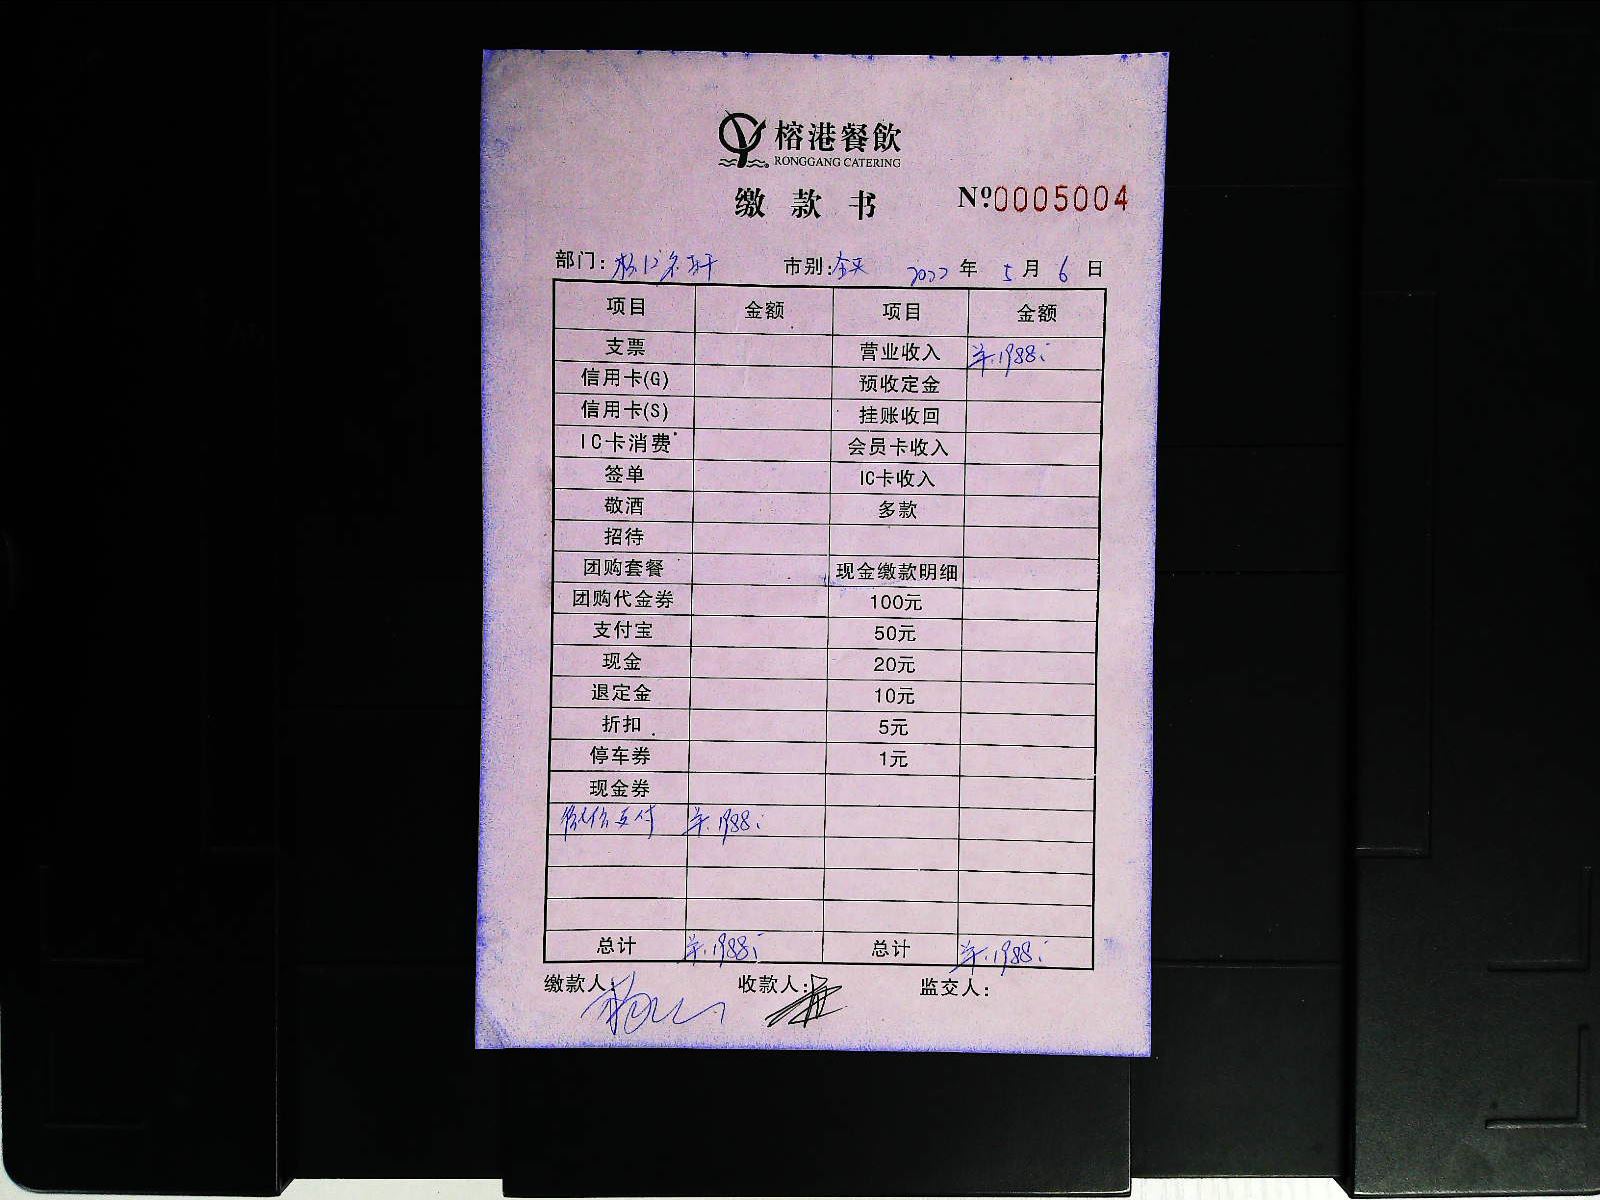 榕港餐飲
RONGGANG CATERING
缴款书 Nº0005004
部门: 市别:全天 2022年5月6日
项目 金额 项目 金额
支票 营业收入 ¥.1988.
信用卡(G) 预收定金
信用卡(S) 挂账收回
IC卡消费 会员卡收入
签单 IC卡收入
敬酒 多款
招待
团购套餐 现金缴款明细
团购代金券 100元
支付宝 50元
现金 20元
退定金 10元
折扣 5元
停车券 1元
现金券
微信支付 ¥.1988.
总计 ¥.1988. 总计 ¥.1988.
缴款人: 收款人: 监交人: